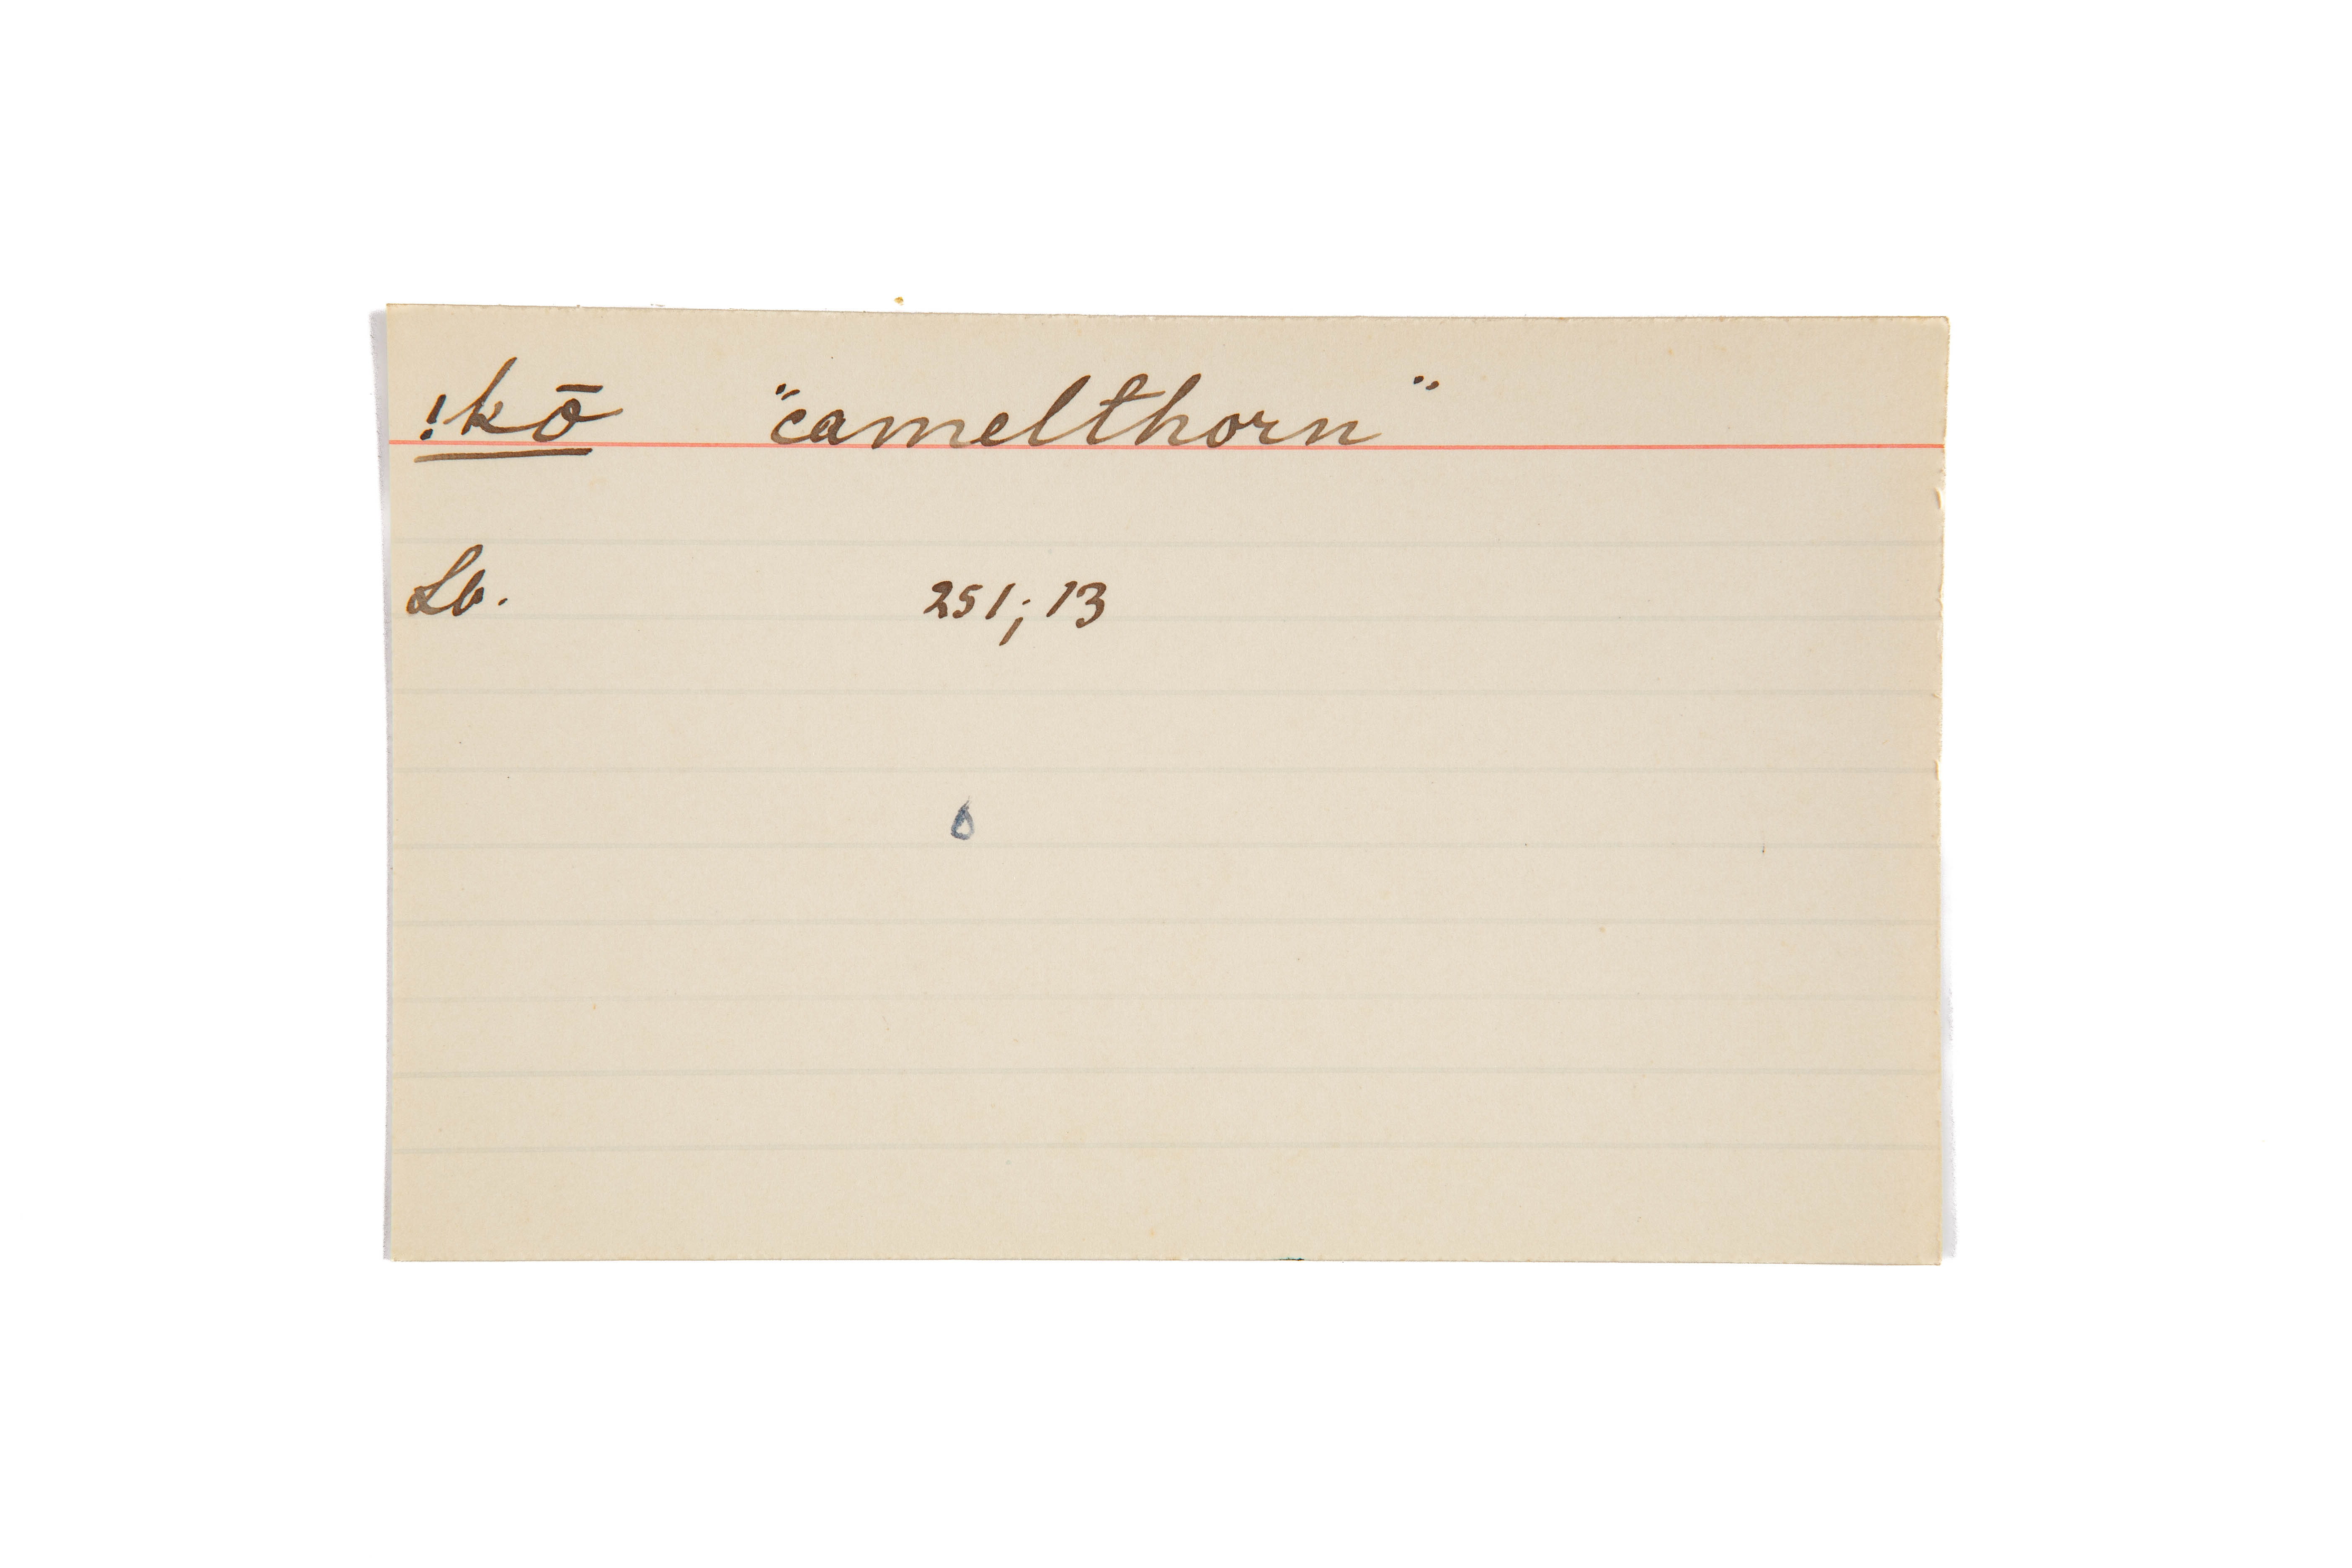 !kō "camelthorn"
Lb. 251; 13